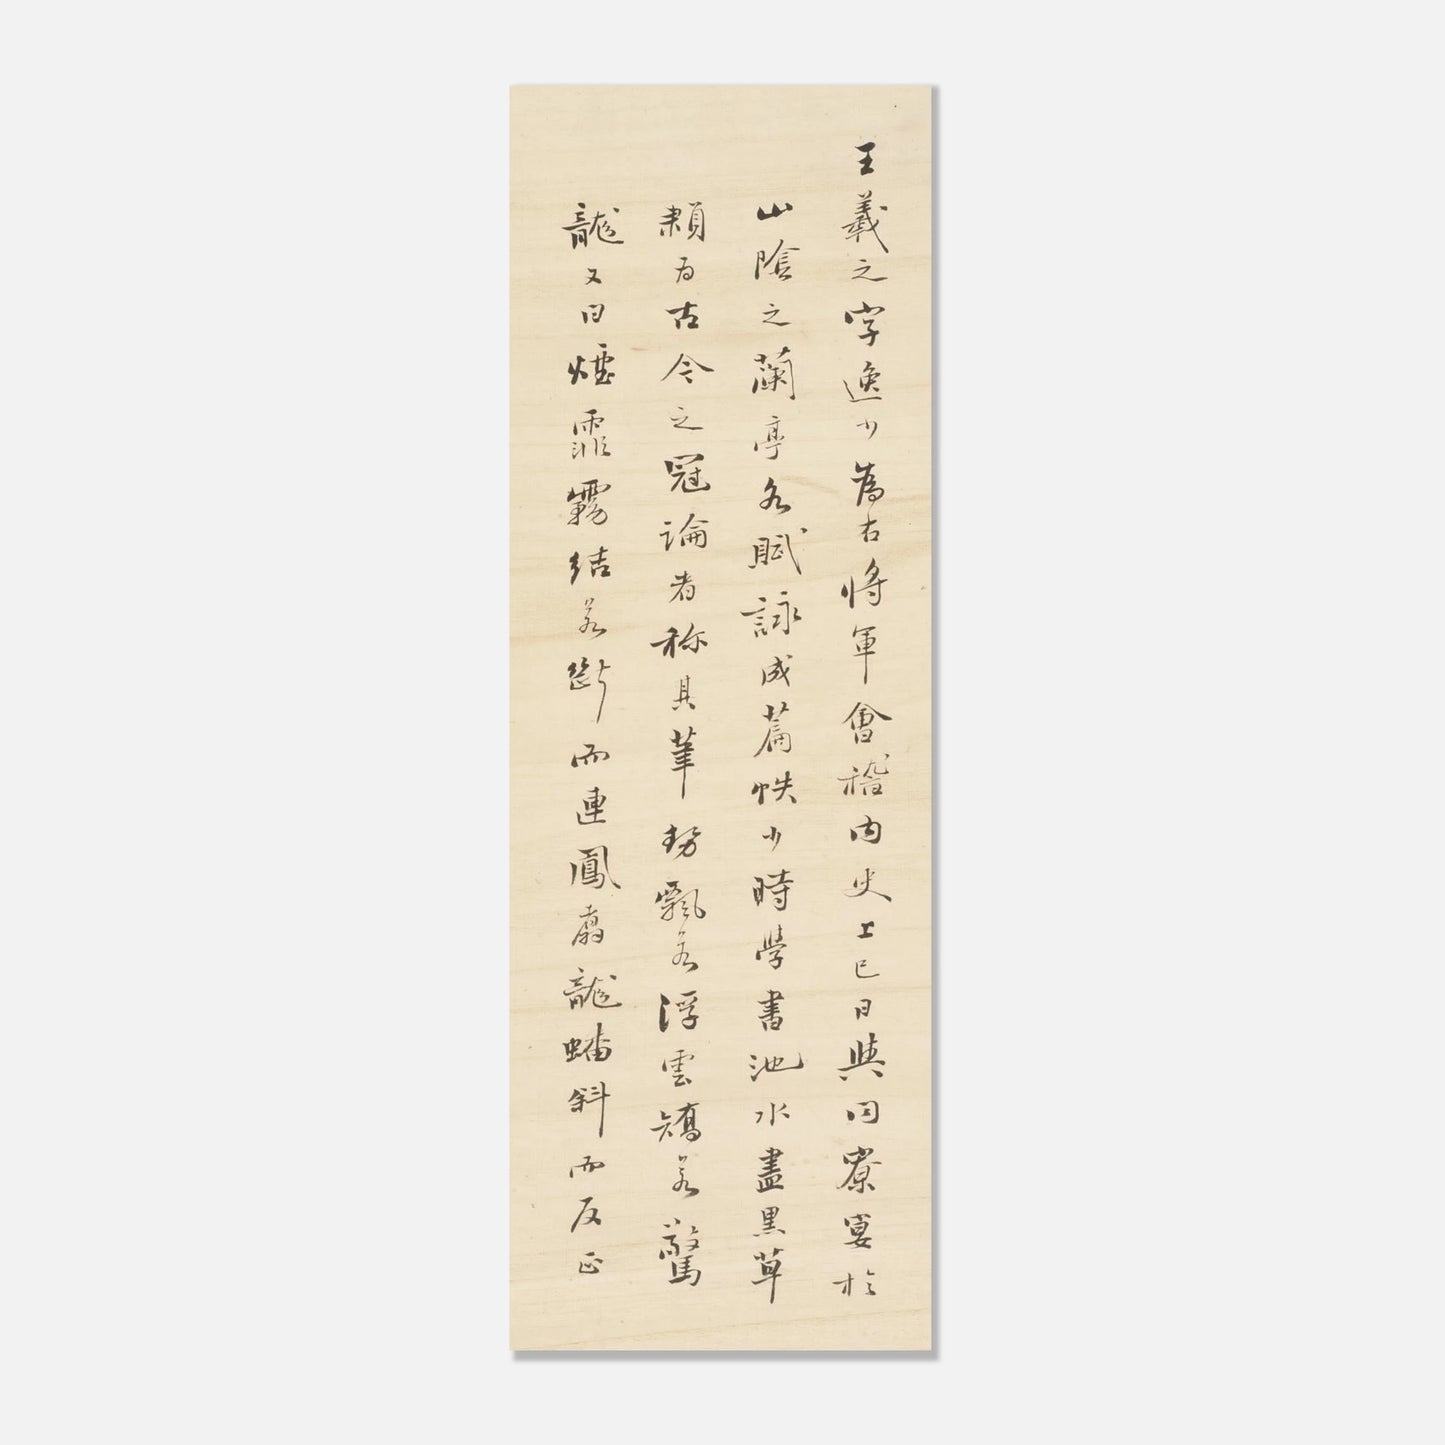 王羲之字逸少為右將軍會稽内史上巳日與同寮宴於
山陰之蘭亭各賦詠成篇帙少時學書池水盡黒草
隸为古今之冠論者称其筆勢飄若浮雲矯若驚
龍又曰煙霏霧結若斷而連鳳翥龍蟠斜而反正